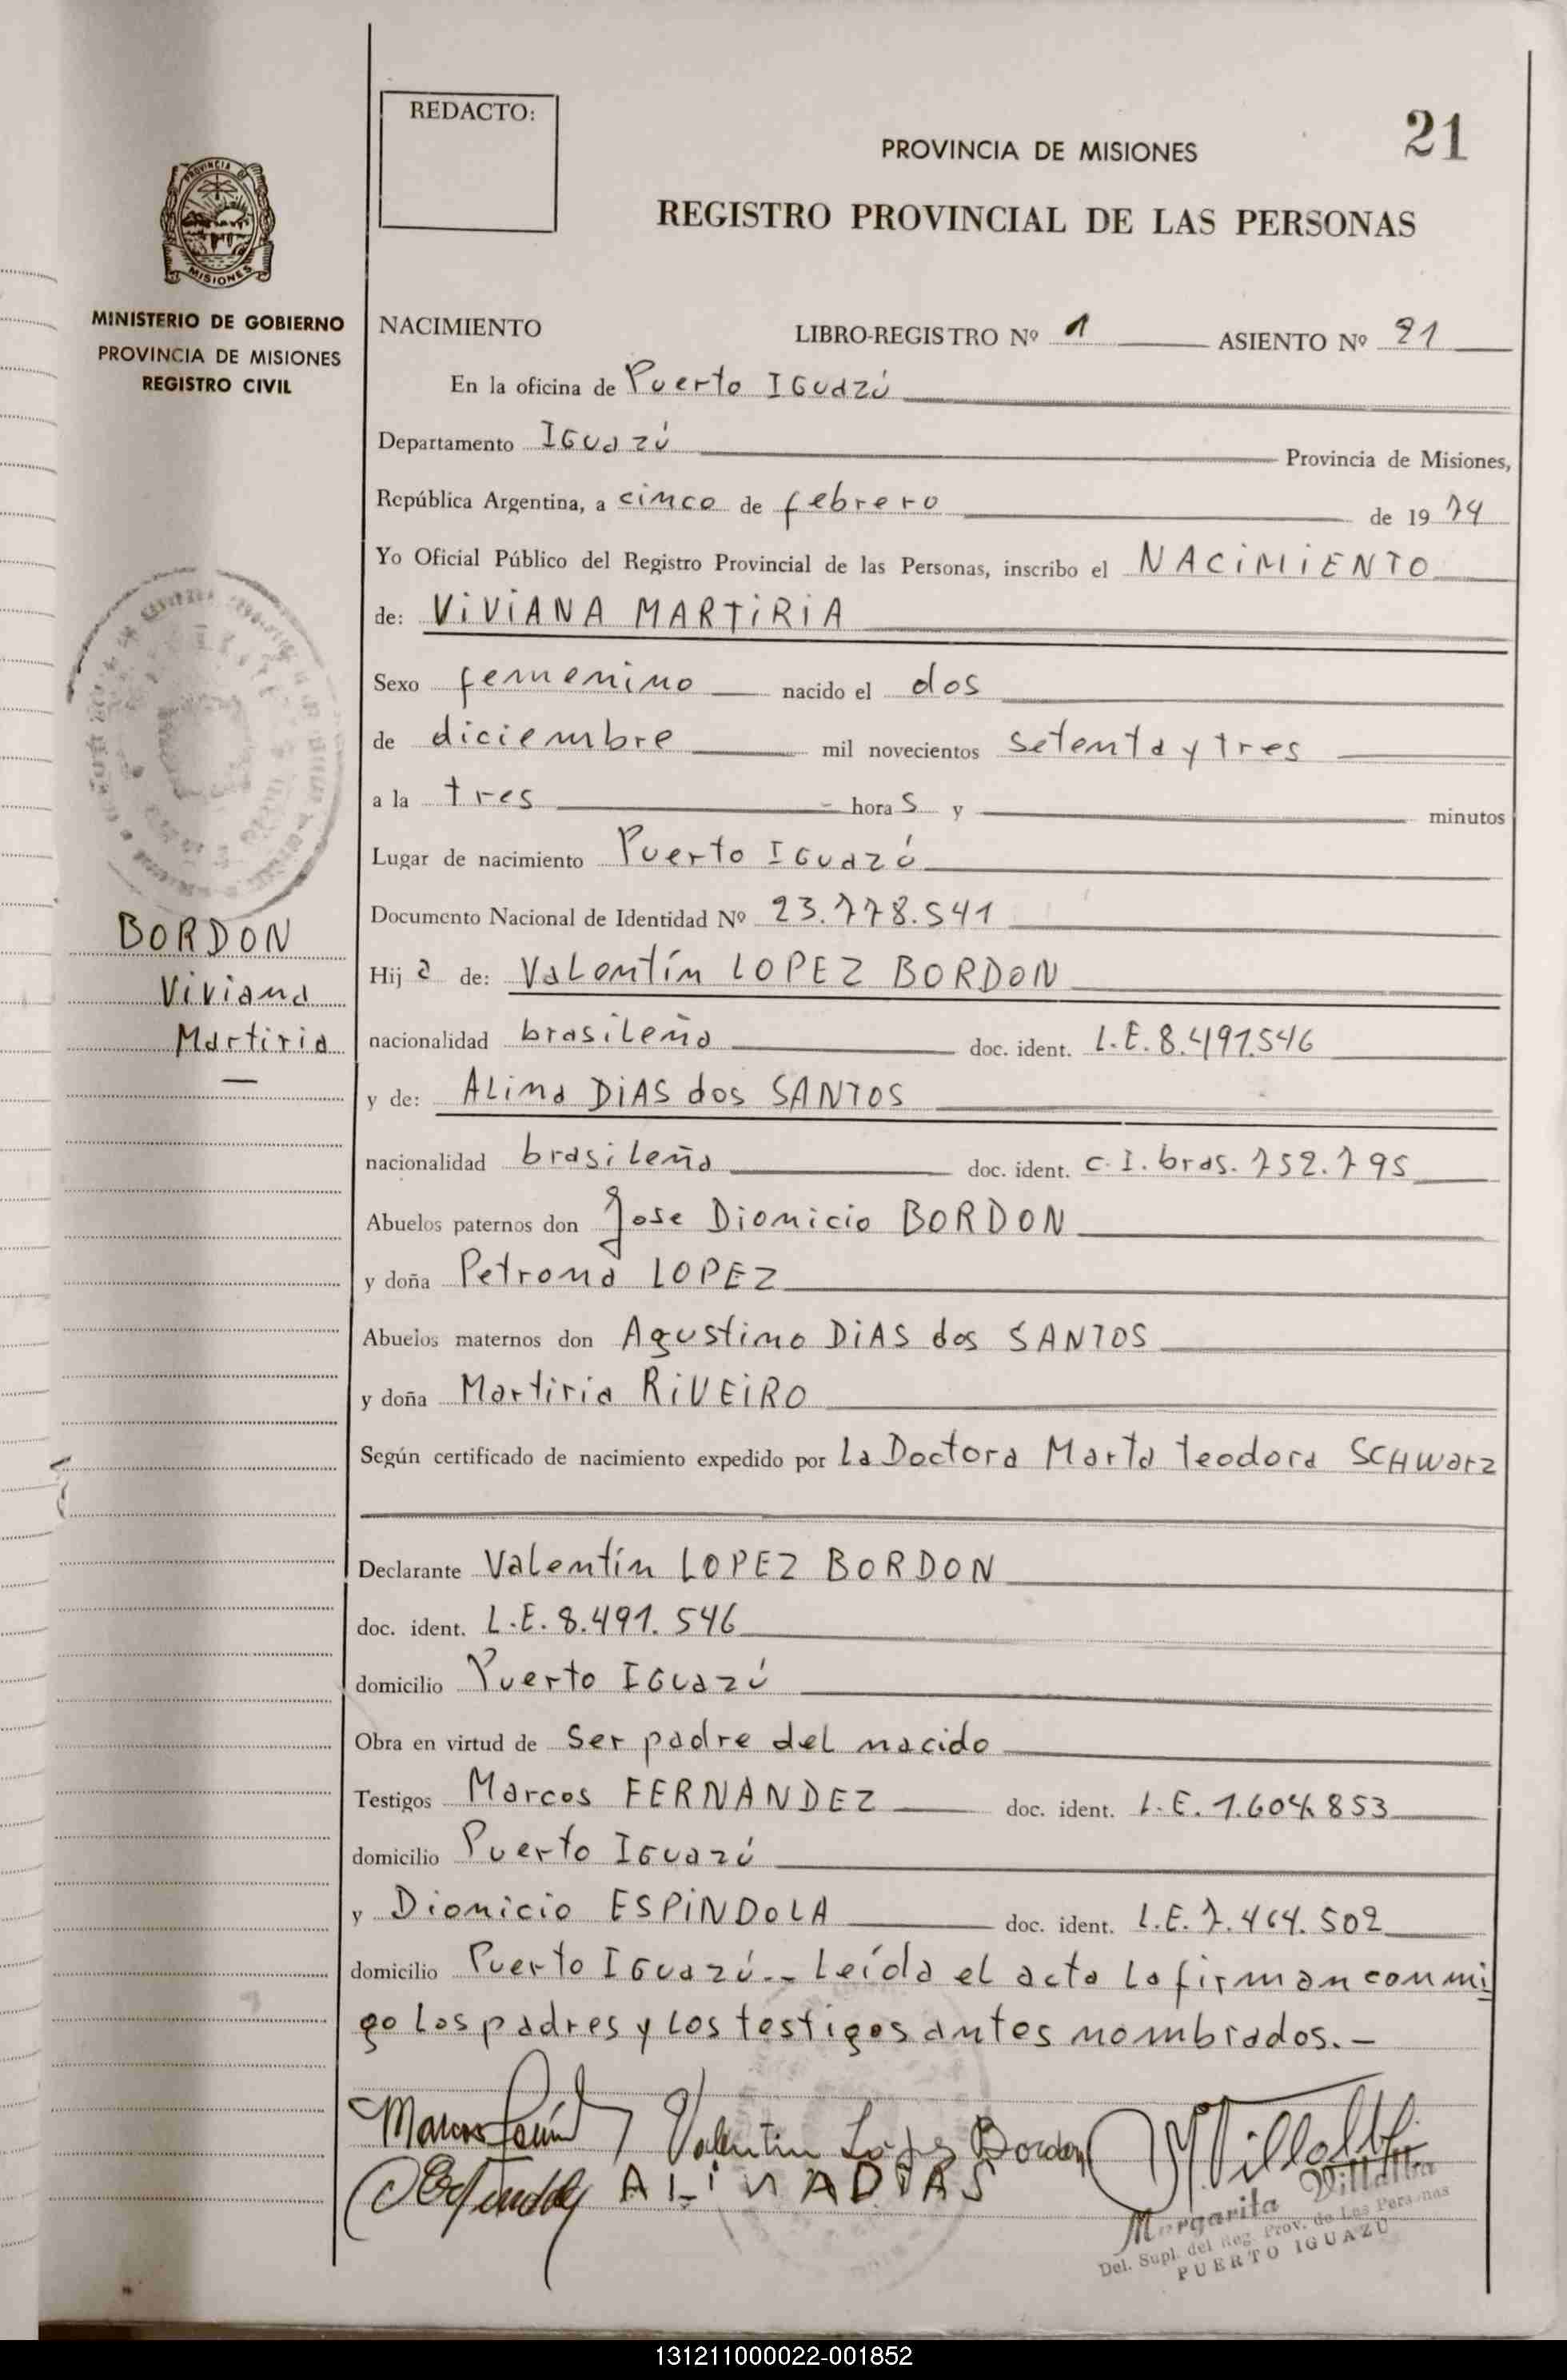 REDACTO:
21
PROVINCIA DE MISIONES
REGISTRO PROVINCIAL DE LAS PERSONAS
PROVINCIA DE
MISIONES
MINISTERIO DE GOBIERNO
PROVINCIA DE MISIONES
REGISTRO CIVIL
BORDON
Viviana
Martiria
NACIMIENTO LIBRO-REGISTRO Nº 1 ASIENTO Nº 21
En la oficina de Puerto IGUAZÚ
Departamento IGUAZÚ Provincia de Misiones,
República Argentina, a cinco de febrero de 1974
Yo Oficial Público del Registro Provincial de las Personas, inscribo el NACIMIENTO
de: VIVIANA MARTIRIA
Sexo femenino nacido el dos
de diciembre mil novecientos setenta y tres
a la tres horas y minutos
Lugar de nacimiento Puerto IGUAZÚ
Documento Nacional de Identidad Nº 23.778.541
Hija de: Valentín LOPEZ BORDON
nacionalidad brasileña doc. ident. L.E. 8.491.546
y de: ALina DIAS dos SANTOS
nacionalidad brasileña doc. ident. C.I. bras. 752.795
Abuelos paternos don Jose Dionicio BORDON
y doña Petrona LOPEZ
Abuelos maternos don Agustino DIAS dos SANTOS
y doña Martiria RIVEIRO
Según certificado de nacimiento expedido por La Doctora Marta teodora SCHwarz
Declarante Valentín LOPEZ BORDON
doc. ident. L.E. 8.491.546
domicilio Puerto IGUAZÚ
Obra en virtud de ser padre del nacido
Testigos Marcos FERNANDEZ doc. ident. L.E. 1.604.853
domicilio Puerto IGUAZÚ
y Dionicio ESPINDOLA doc. ident. L.E. 7.464.502
domicilio Puerto IGUAZÚ.- Leída el acta la firman conmi
go los padres y los testigos antes nombrados.-
Marcos Valentin López Bordon Villalba
ALINA DIAS
Margarita Villalba
Del. Supl. del Reg. Prov. de Las Personas
PUERTO IGUAZU
131211000022-001852